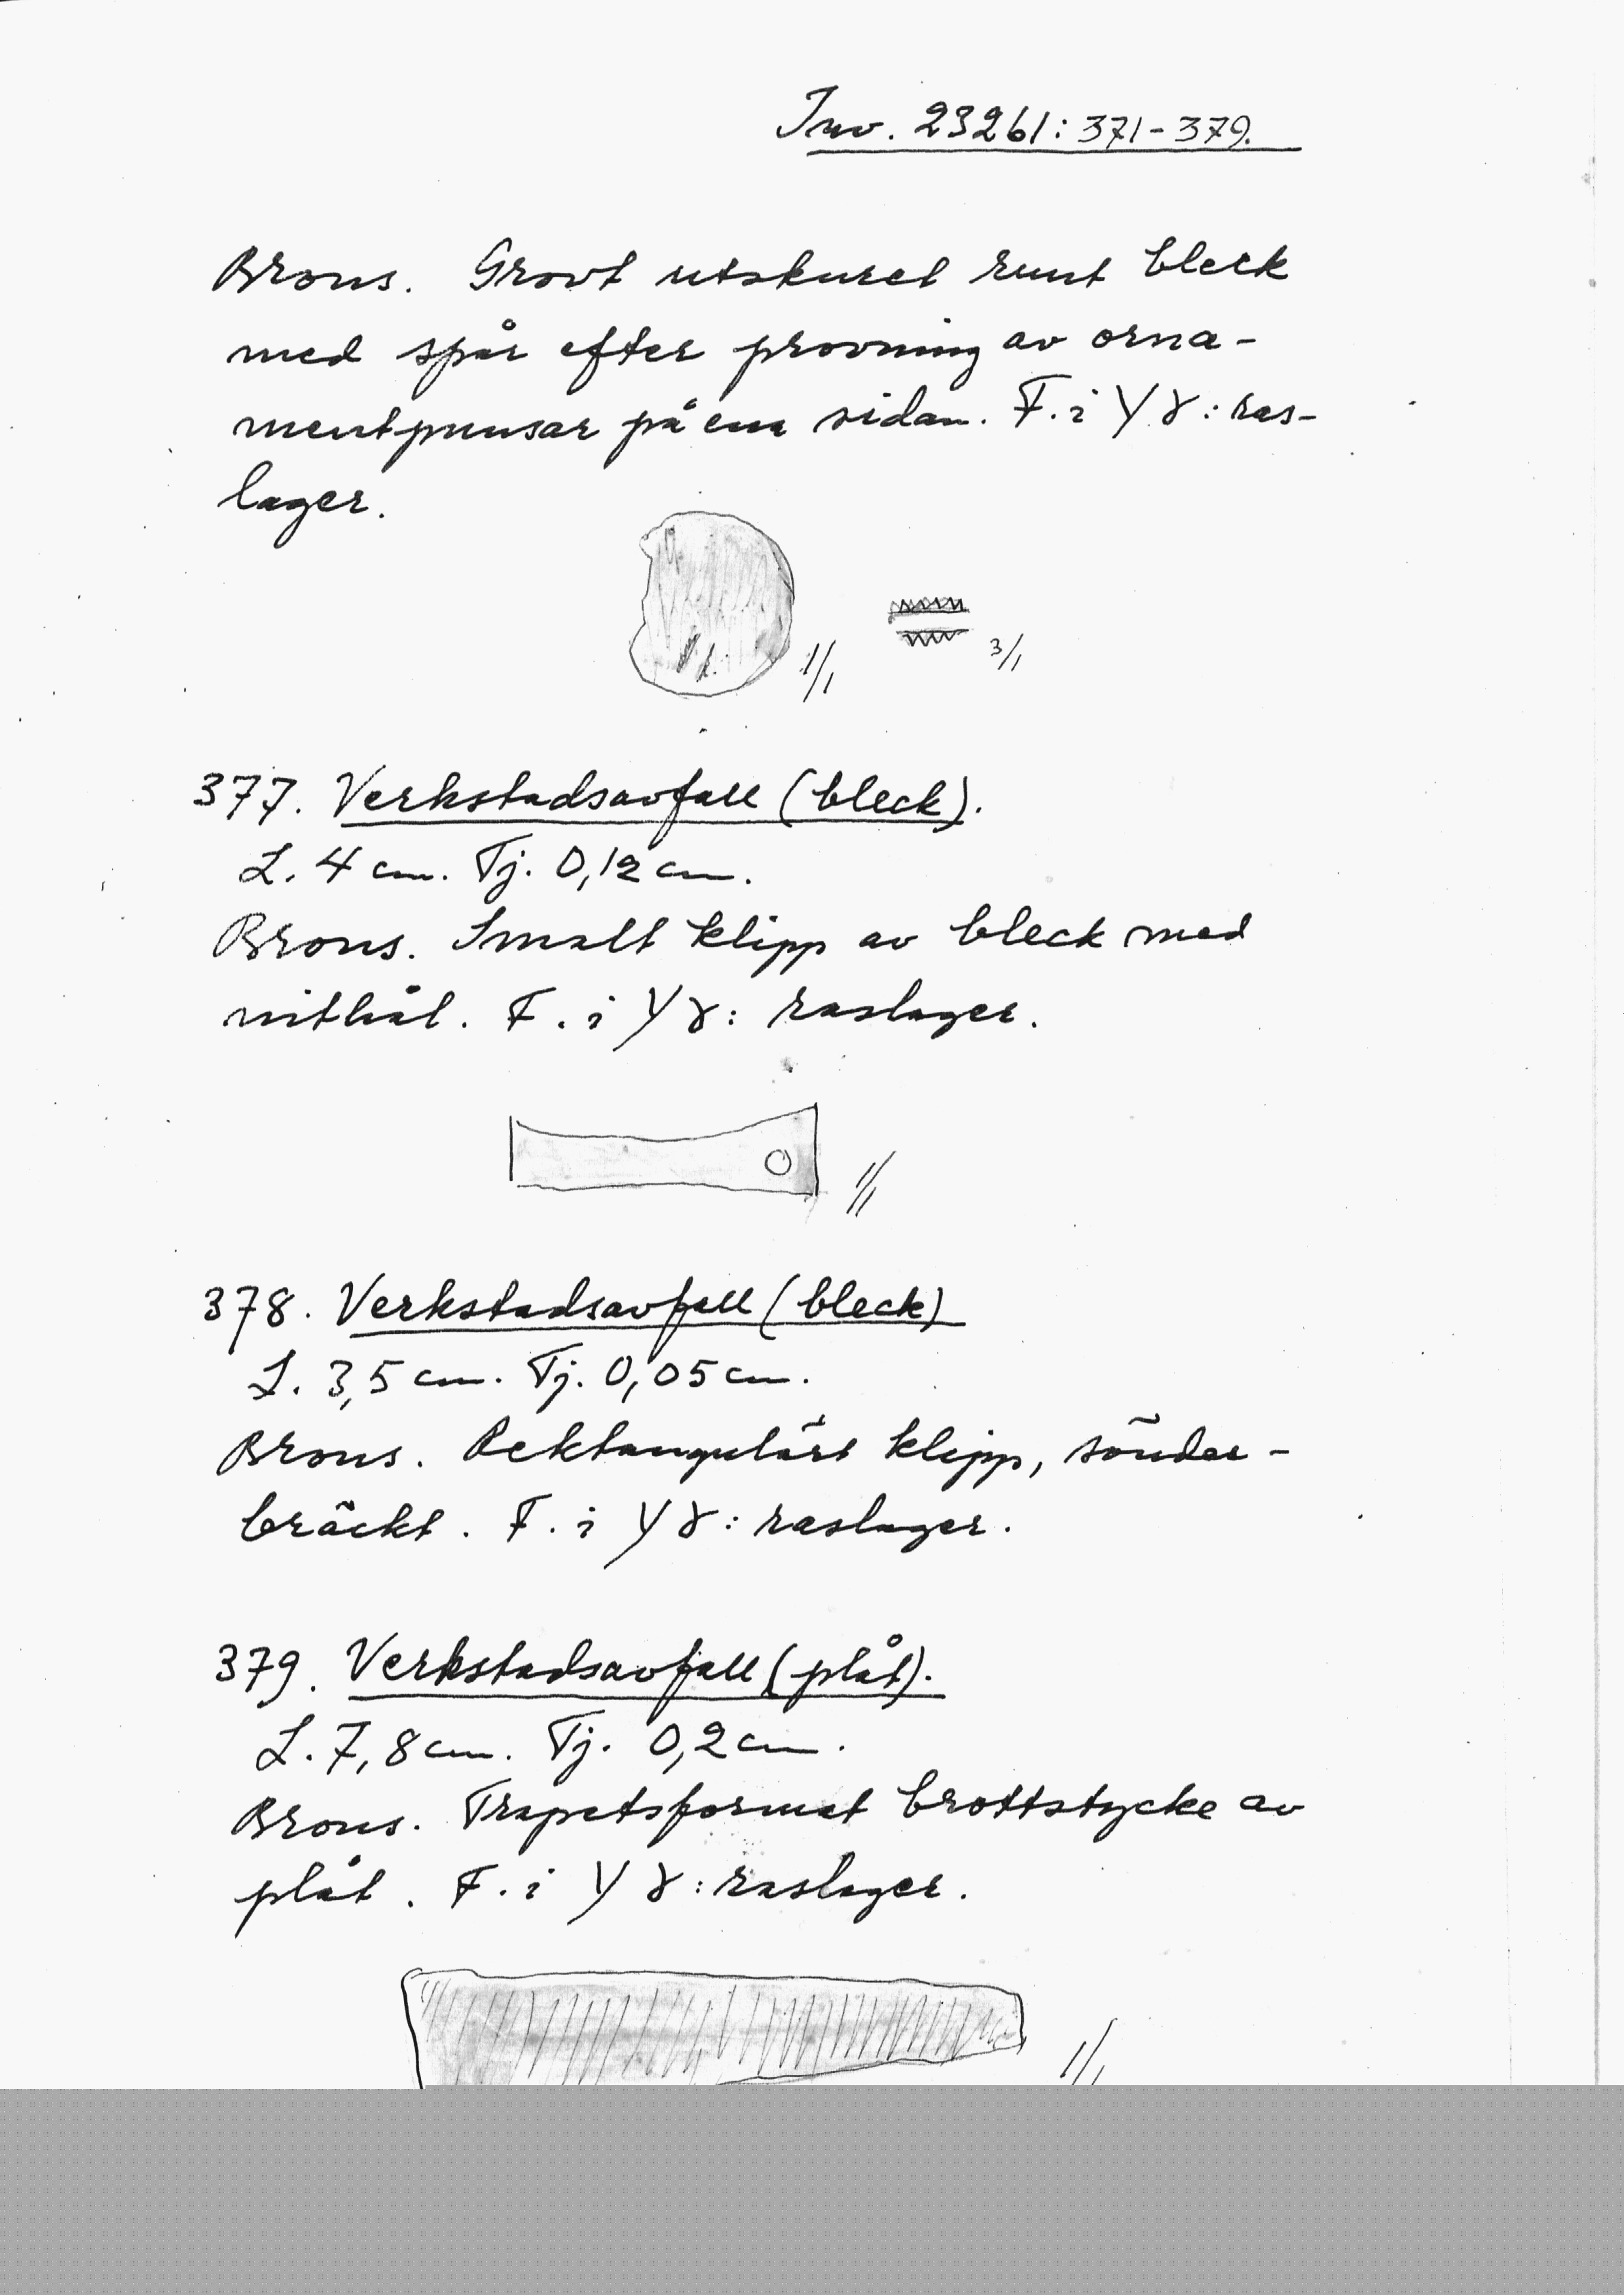 Inv. 23261: 371-379.
Brons. Grovt utskuret runt bleck
med spår efter provning av orna-
mentpunsar på ena sidan. F. i Y γ: ras-
lager.
1/1
3/1
377. Verkstadsavfall (bleck).
L. 4 cm. Tj. 0,12 cm.
Brons. Smalt klipp av bleck med
nithål. F. i Y γ: raslager.
1/1
378. Verkstadsavfall (bleck)
L. 3,5 cm. Tj. 0,05 cm.
Brons. Rektangulärt klipp, sönder-
bräckt. F. i Y γ: raslager.
379. Verkstadsavfall (plåt).
L. 7,8 cm. Tj. 0,2 cm.
Brons. Trapetsformat brottstycke av
plåt. F. i Y γ: raslager.
1/1